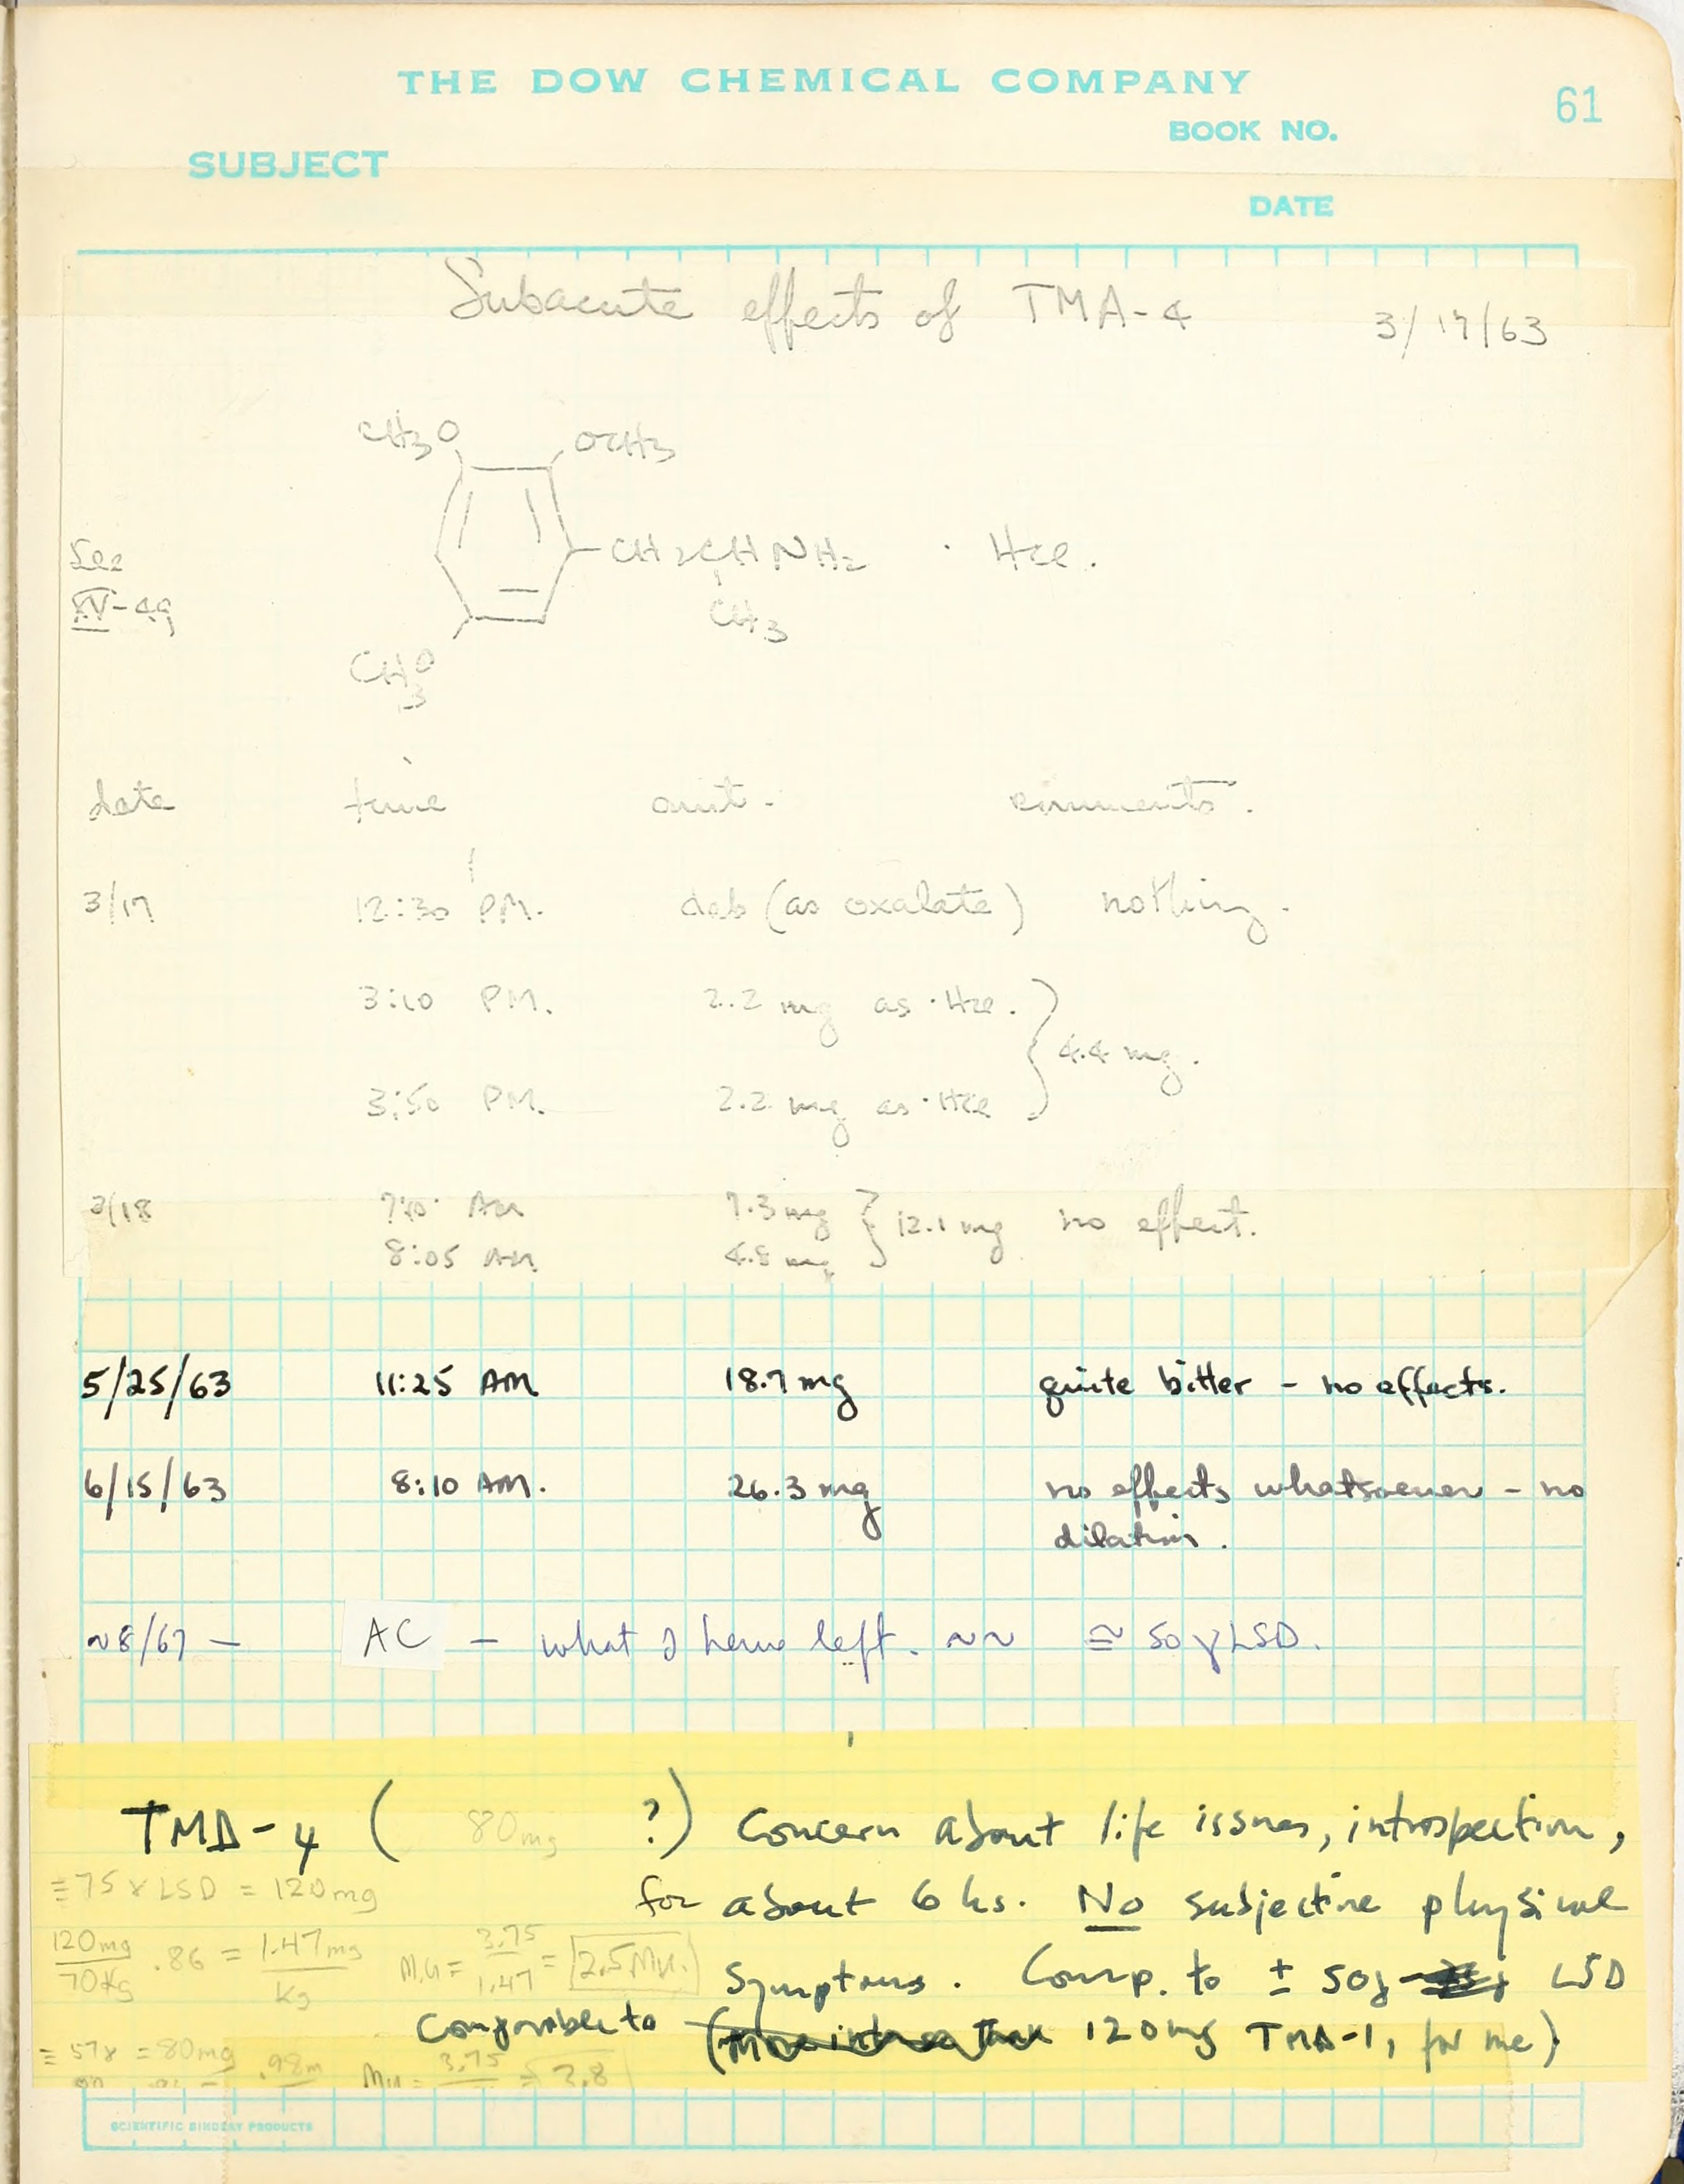 THE DOW CHEMICAL COMPANY
61
BOOK NO.
SUBJECT
DATE
Subacute effects of TMA-4 3/17/63
CH3O OCH3
See
XV-49
CH2CHNH2 · HCl.
CH3
CH3O
date time amt. comments.
3/17 12:30 PM. dab (as oxalate) nothing.
3:10 PM. 2.2 mg as ·HCl.
4.4 mg.
3:50 PM. 2.2 mg as ·HCl
3/18 AM 7.3 mg
12.1 mg no effect.
8:05 AM 4.8 mg
5/25/63 11:25 AM 18.7 mg quite bitter - no effects.
6/15/63 8:10 AM. 26.3 mg no effects whatsoever - no
dilation.
~8/67 — AC — what I have left. ~~ ≅ 50 γ LSD.
TMA-4 ( 80mg ?) Concern about life issues, introspection,
≡75 γ LSD = 120mg
for about 6 hs. No subjective physical
120mg/70Kg .86 = 1.47mg/Kg M.U = 3.75/1.47 = 2.5 M.U.
symptoms. Comp. to ± 50γ LSD
Comparable to 120mg TMA-1, for me).
≡ 57γ = 80mg .98m M.U = 3.75 = 3.8
SCIENTIFIC BINDERY PRODUCTS